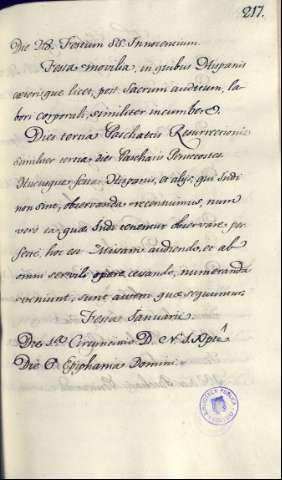 217.
Die 28. Festum SS. Innocentium
Festa movilia, in quibus Hispanis
ceterisque licet, post Sacrum auditum, la
bori corporali, similiter incumbere.
Dies tertia Paschatis Resurrectionis
similiter tertia dies Paschatis Penecostes
Hucusque festa Hispanis, et alijs, qui Indi
non sunt, observanda recensuimus, nunc
vero ea, quae Indi tenentur observare per
fecte, hoc est Missam audiendo, et ab
omni servili opere cesando, numeranda
veniunt, sunt autem quae sequuntur
Festa Januarii.
Die 1.ª Circuncisio D. N. J. Xpti
Die 6. Epiphania Domini.
BIBLIOTECA PUBLICA